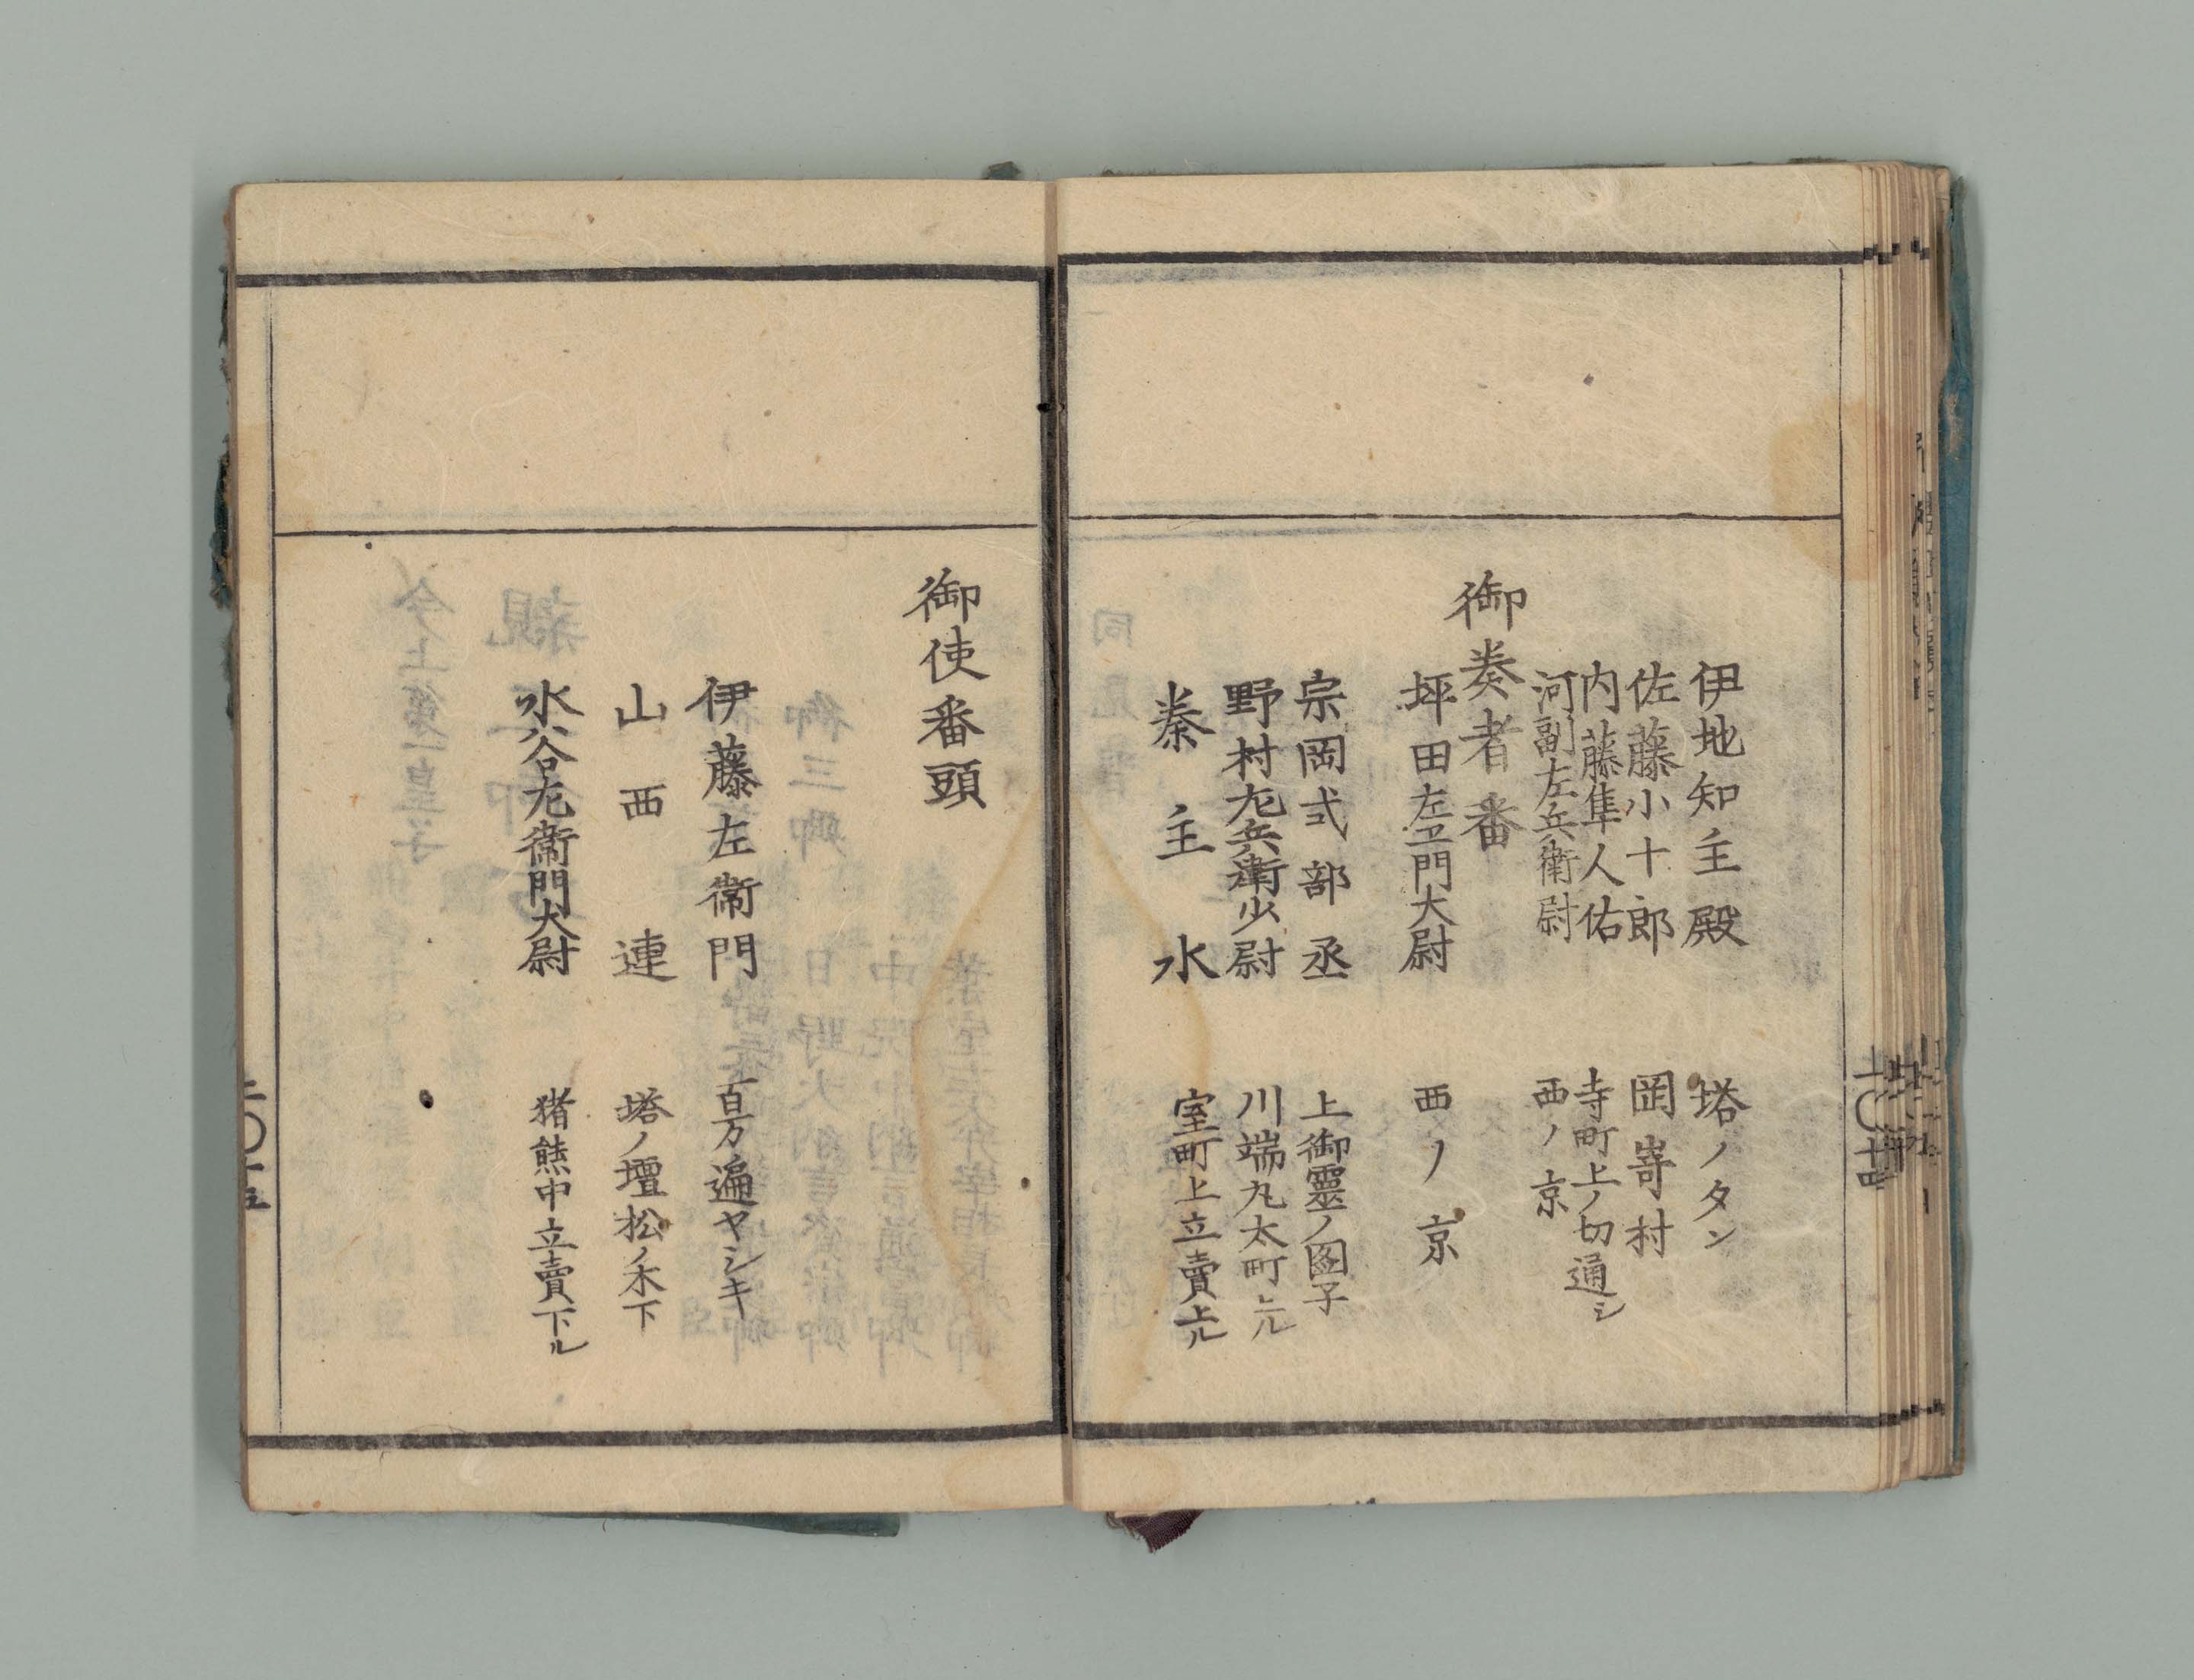 伊地知主殿 塔ノタン
佐藤小十郎 岡嵜村
内藤隼人佑 寺町上ノ切通シ
河副左兵衛尉 西ノ京
御奏者番
坪田左卫門大尉 西ノ京
宗岡式部丞 上御靈ノ図子
野村左兵衛少尉 川端丸太町上ル
秦主水 室町上立賣上ル
御使番頭
伊藤左衛門 百万遍ヤシキ
山西連 塔ノ壇松ノ木下
水谷左衛門大尉 猪熊中立賣下ル